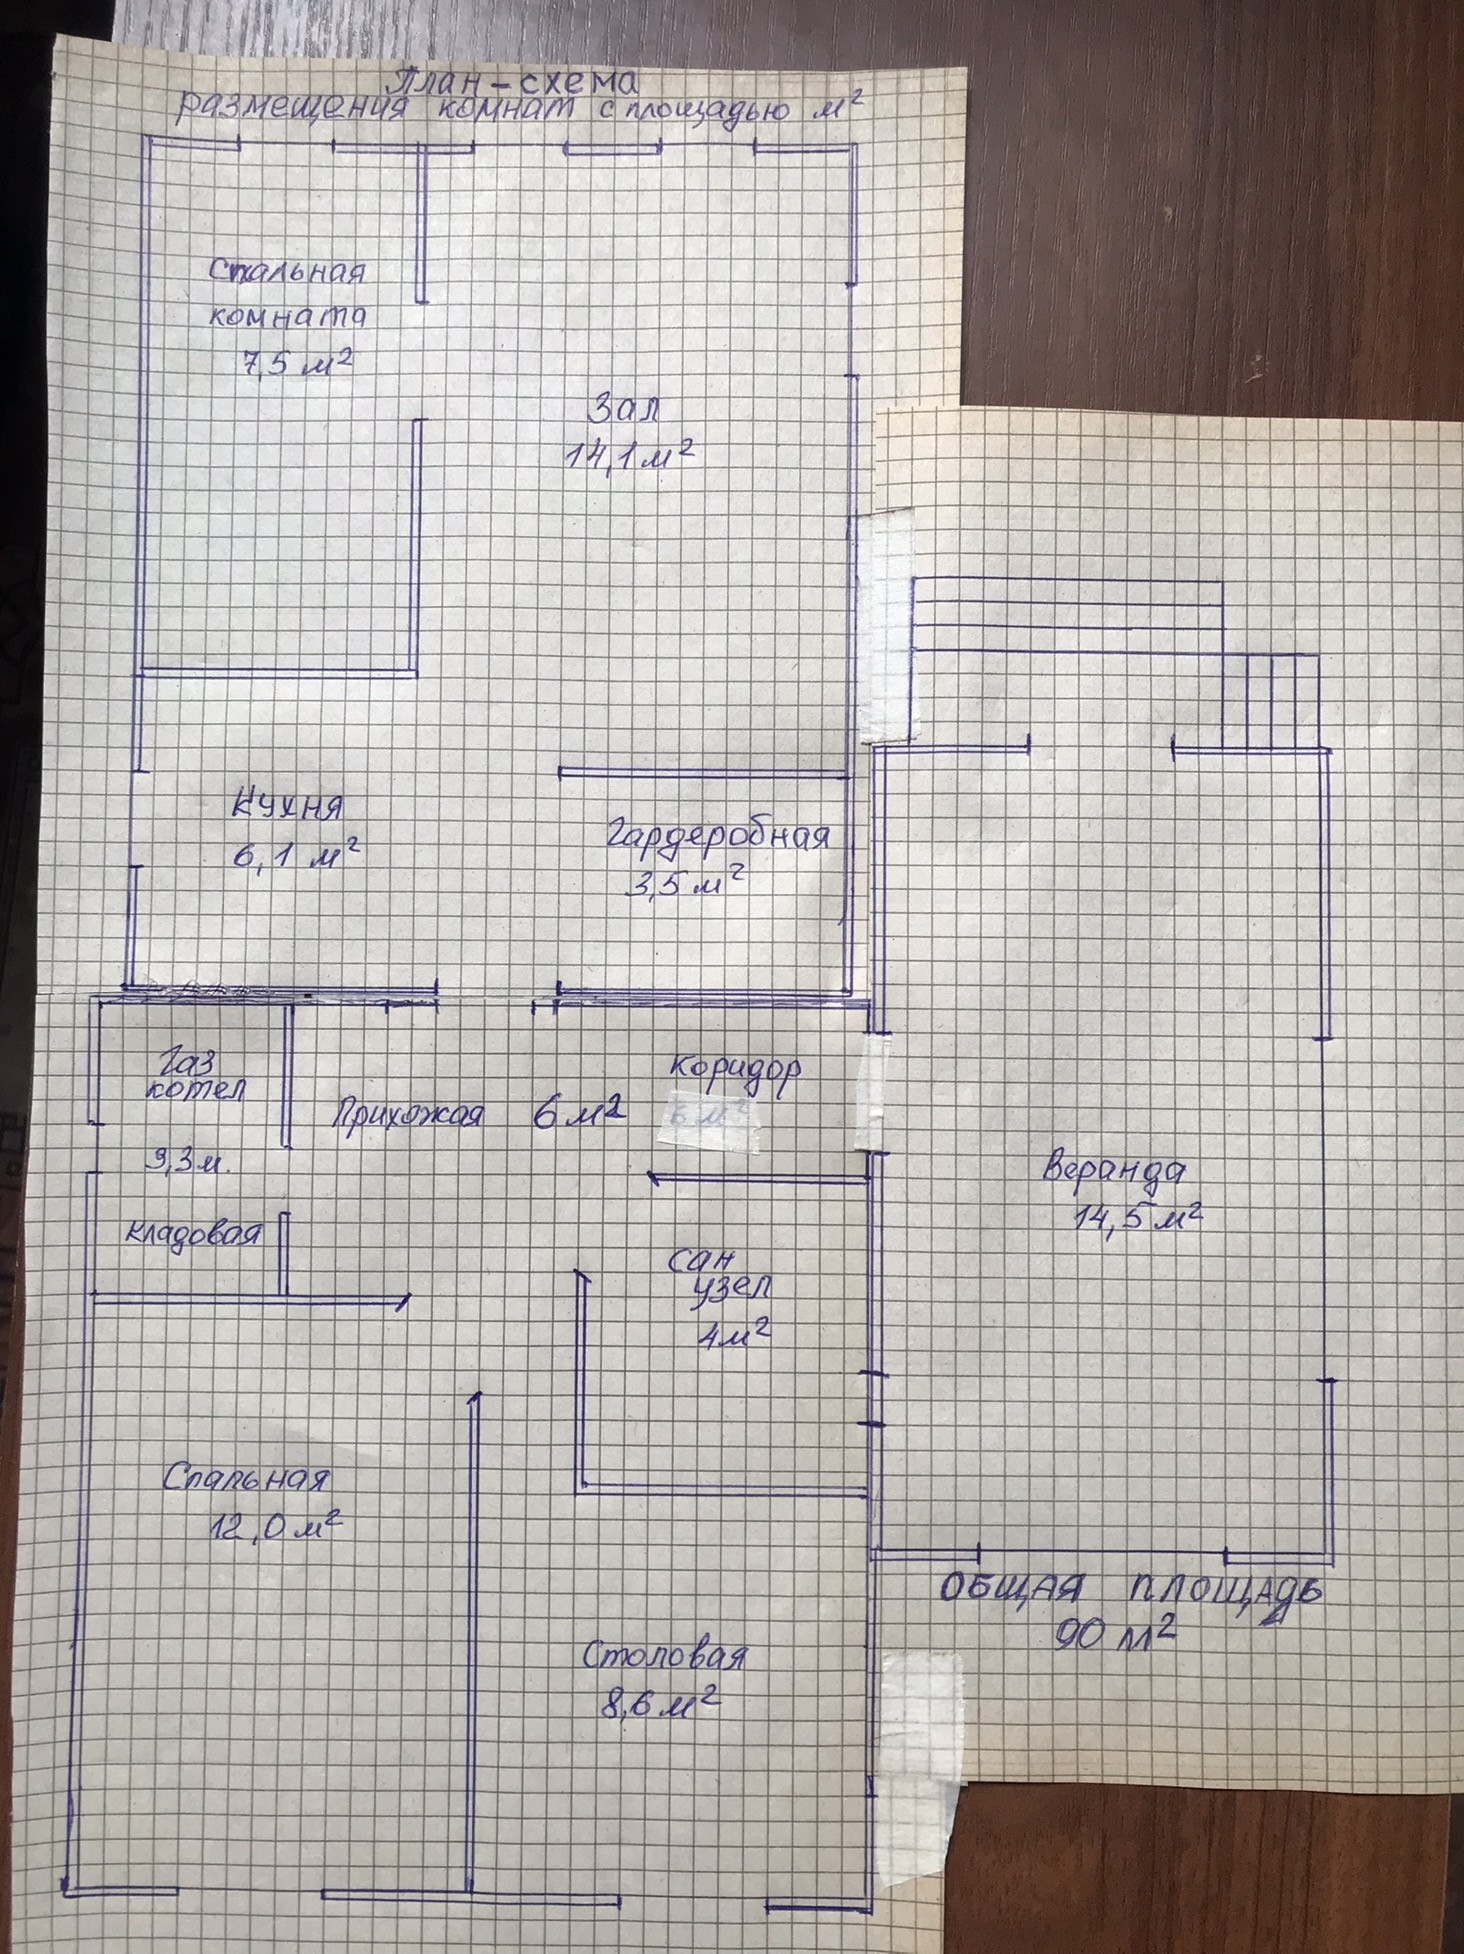 План-схема
размещения комнат с площадью м²
Спальная
комната
7,5 м²
Зал
14,1 м²
Кухня
6,1 м²
Гардеробная
3,5 м²
Газ
котел
9,3 м.
кладовая
Прихожая 6 м²
коридор
6 м²
сан
узел
4 м²
Веранда
14,5 м²
Спальная
12,0 м²
Столовая
8,6 м²
ОБЩАЯ ПЛОЩАДЬ
90 м²